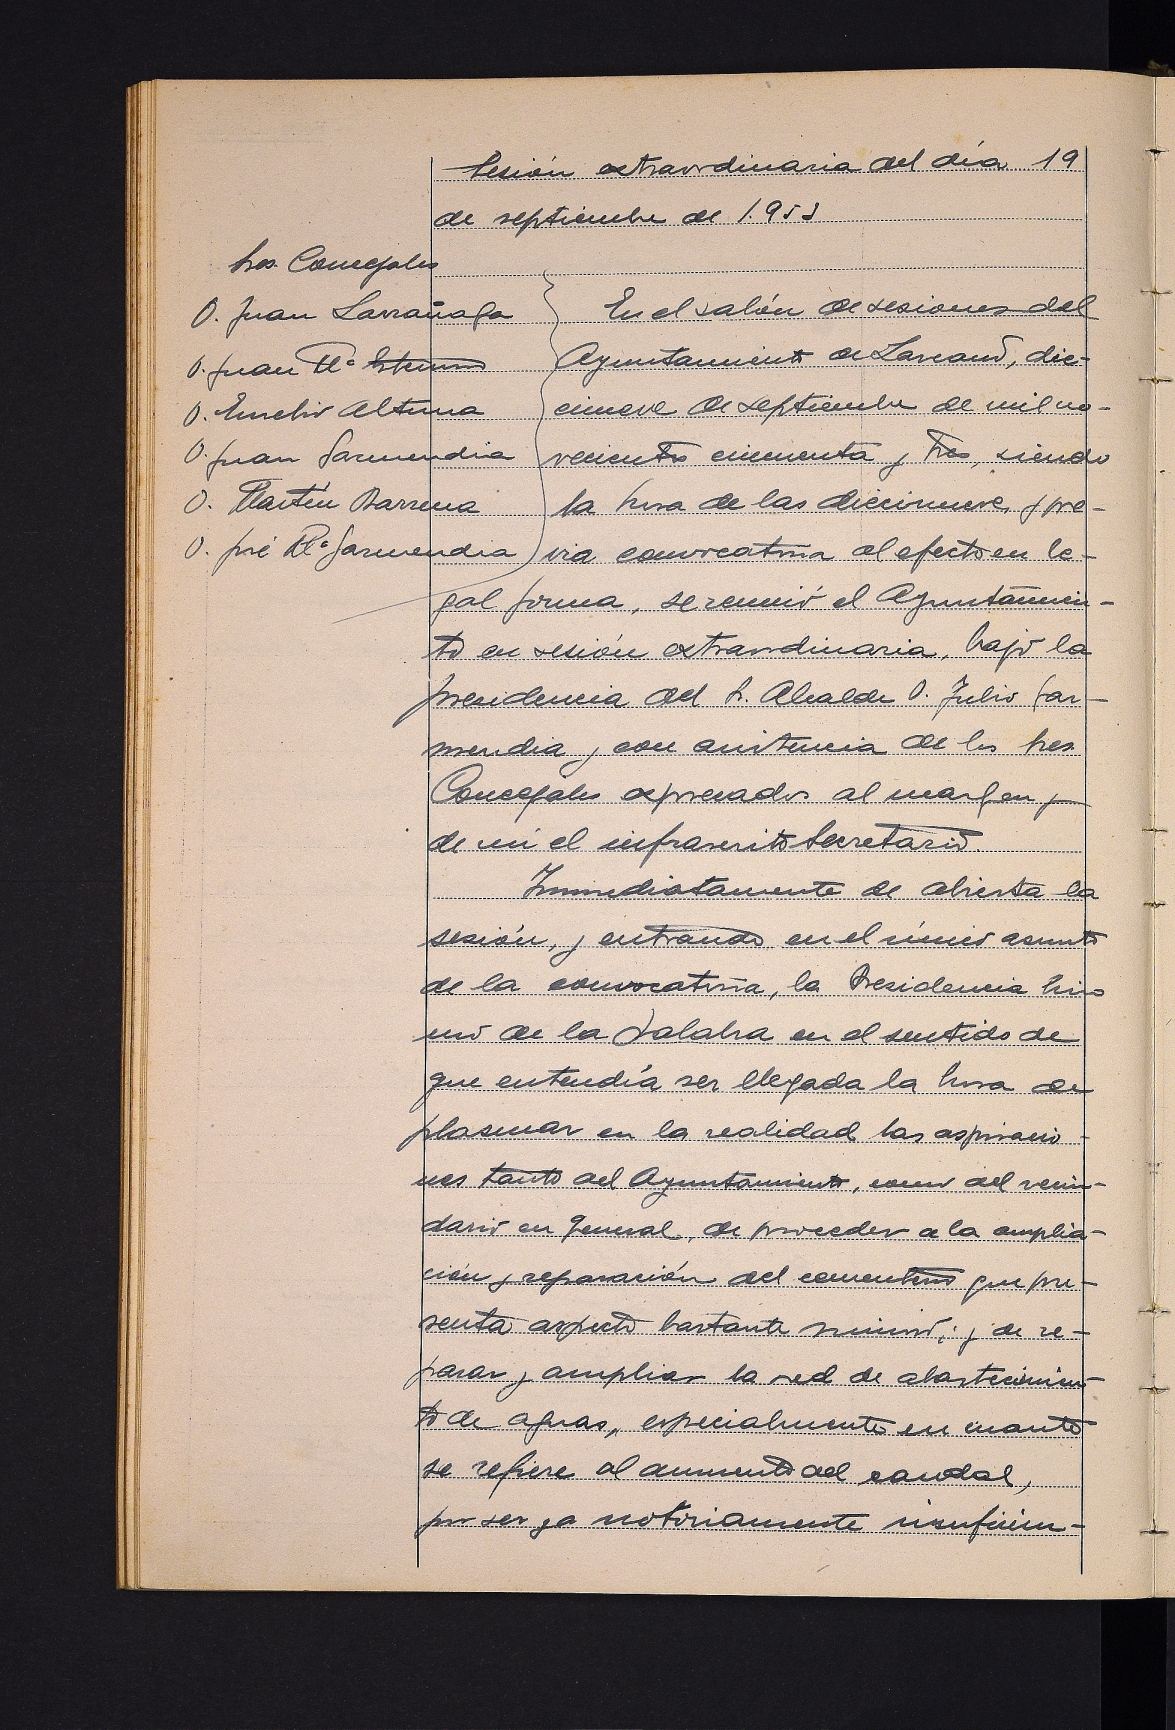 Sesión extraordinaria del día 19
de septiembre de 1.953
Sres. Concejales
D. Juan Larrañaga
D. Juan Mª
D. Emeterio Altuna
D. Juan Garmendia
D. Martín Barrena
D. José Mª Garmendia
En el salón de sesiones del
Ayuntamiento de Lazcano, die-
cinueve de septiembre de mil no-
vecientos cincuenta y tres, siendo
la hora de las diecinueve, y pre-
via convocatoria al efecto en le-
gal forma, se reunió el Ayuntamien-
to en sesión extraordinaria, bajo la
presidencia del S. Alcalde D. Julio Gar-
mendia y con asistencia de los Sres.
Concejales expresados al margen y
de mí el infrascrito Secretario.
Inmediatamente de abierta la
sesión, y entrando en el único asunto
de la convocatoria, la Presidencia hizo
uso de la palabra en el sentido de
que entendía ser llegada la hora de
plasmar en la realidad las aspiracio-
nes tanto del Ayuntamiento, como del vecin-
dario en general, de proceder a la amplia-
ción y reparación del cementerio que pre-
senta aspecto bastante ruinoso; y de re-
parar y ampliar la red de abastecimien-
to de aguas, especialmente en cuanto
se refiere al aumento del caudal,
por ser ya notoriamente insuficien-